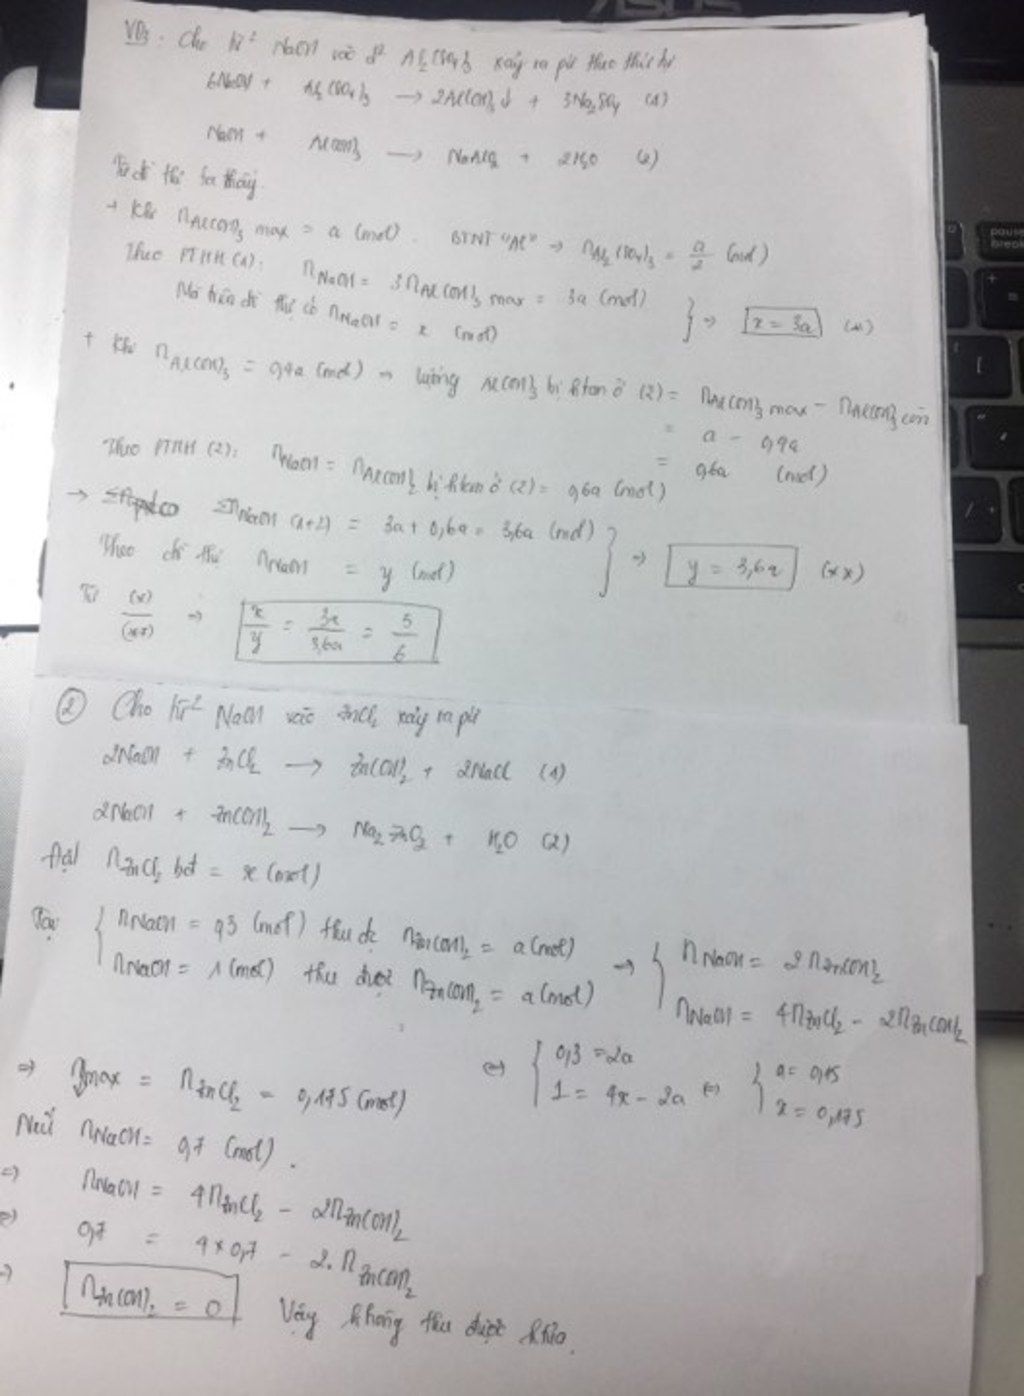 VD3: Cho từ² NaOH vào d² Al₂(SO₄)₃ xảy ra pứ theo thứ tự
6NaOH + Al₂(SO₄)₃ → 2Al(OH)₃↓ + 3Na₂SO₄ (1)
NaOH + Al(OH)₃ → NaAlO₂ + 2H₂O (2)
Từ đồ thị ta thấy.
+ Khi nAl(OH)₃ max = a (mol). BTNT "Al" → nAl₂(SO₄)₃ = a/2 (mol)
Theo PTHH (1): nNaOH = 3nAl(OH)₃ max = 3a (mol)
Mà trên đồ thị có nNaOH = x (mol) } ⇒ x = 3a (*)
+ Khi nAl(OH)₃ = 0,4a (mol) ⇒ lượng Al(OH)₃ bị h.tan ở (2) = nAl(OH)₃ max − nAl(OH)₃ còn
= a − 0,4a
= 0,6a (mol)
Theo PTHH (2): nNaOH = nAl(OH)₃ bị h.tan ở (2) = 0,6a (mol)
→ ΣnNaOH (1+2) = 3a + 0,6a = 3,6a (mol)
Theo đồ thị nNaOH = y (mol) } ⇒ y = 3,6a (**)
Từ (*)/(**) ⇒ x/y = 3a/3,6a = 5/6
② Cho từ² NaOH vào ZnCl₂ xảy ra pứ
2NaOH + ZnCl₂ → Zn(OH)₂ + 2NaCl (1)
2NaOH + Zn(OH)₂ → Na₂ZnO₂ + H₂O (2)
Đặt nZnCl₂ bđ = x (mol)
Tại { nNaOH = 0,3 (mol) thu đc nZn(OH)₂ = a (mol)
nNaOH = 1 (mol) thu được nZn(OH)₂ = a (mol) ⇒ { nNaOH = 2nZn(OH)₂
nNaOH = 4nZnCl₂ − 2nZn(OH)₂
⇔ { 0,3 = 2a
1 = 4x − 2a ⇔ { a = 0,15
x = 0,175
⇒ max = nZnCl₂ = 0,175 (mol)
Nếu nNaOH = 0,7 (mol).
⇒ nNaOH = 4nZnCl₂ − 2nZn(OH)₂
⇔ 0,7 = 4 × 0,7 − 2.nZn(OH)₂
⇒ nZn(OH)₂ = 0 Vậy không thu được kết tủa.
pause
break